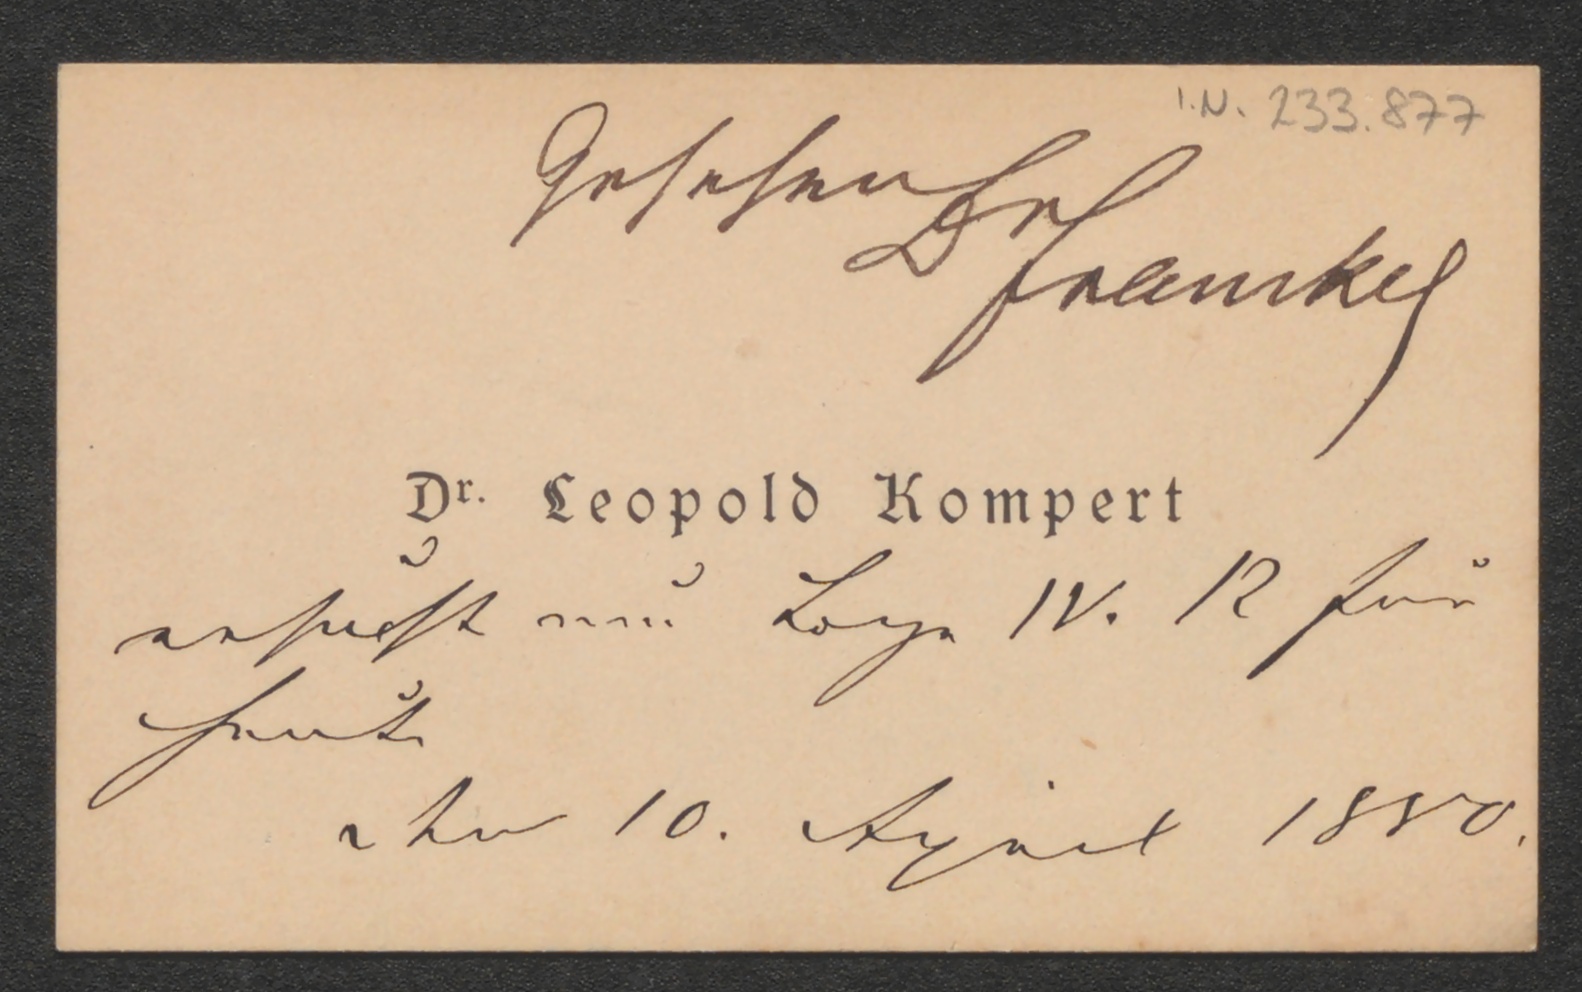 I.N. 233.877
Gesehen
Dr
Frankl
Dr. Leopold Kompert
ersucht um Loge N. 12 für
heute
den 10. April 1880.